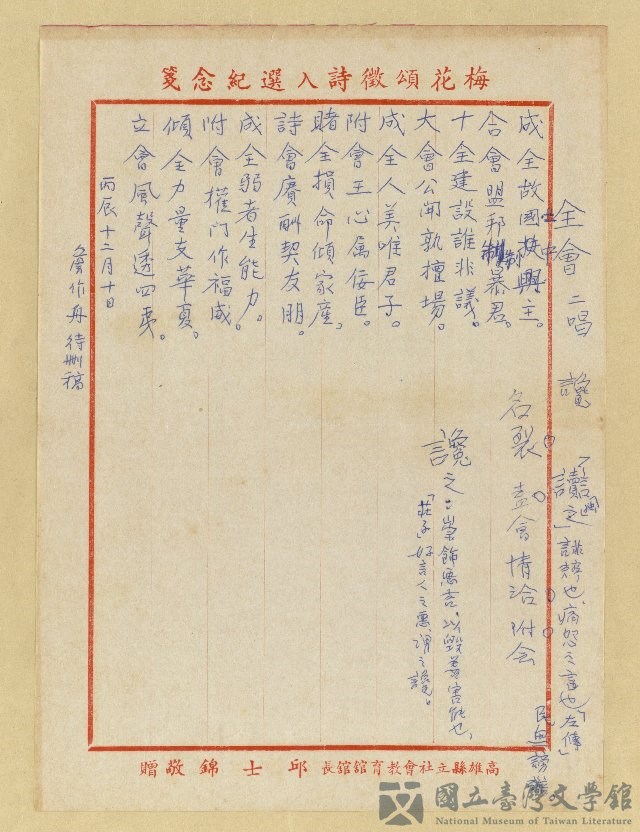 梅花頌徵詩入選紀念箋
全會 二唱
成全故國中興主。
合會盟邦制暴君。
十全建設誰非議。
大會公開孰擅場。
成全人美唯君子。
附會王心屬佞臣。
賭全損命傾家產。
詩會賡酬契友朋。
成全弱者生能力。
附會權門作福威。
傾全力量支華夏。
立會風聲透四夷。
丙辰十二月十日
待刪稿
讒
名裂
會情洽附会
也、痛怨之言也「左傳」
民無謗讟
讒之：崇飾惡言，以毀善害能也、
「莊子」好言人之惡謂之讒。
高雄縣立社會教育館館長 邱士錦敬贈
國立臺灣文學館
National Museum of Taiwan Literature